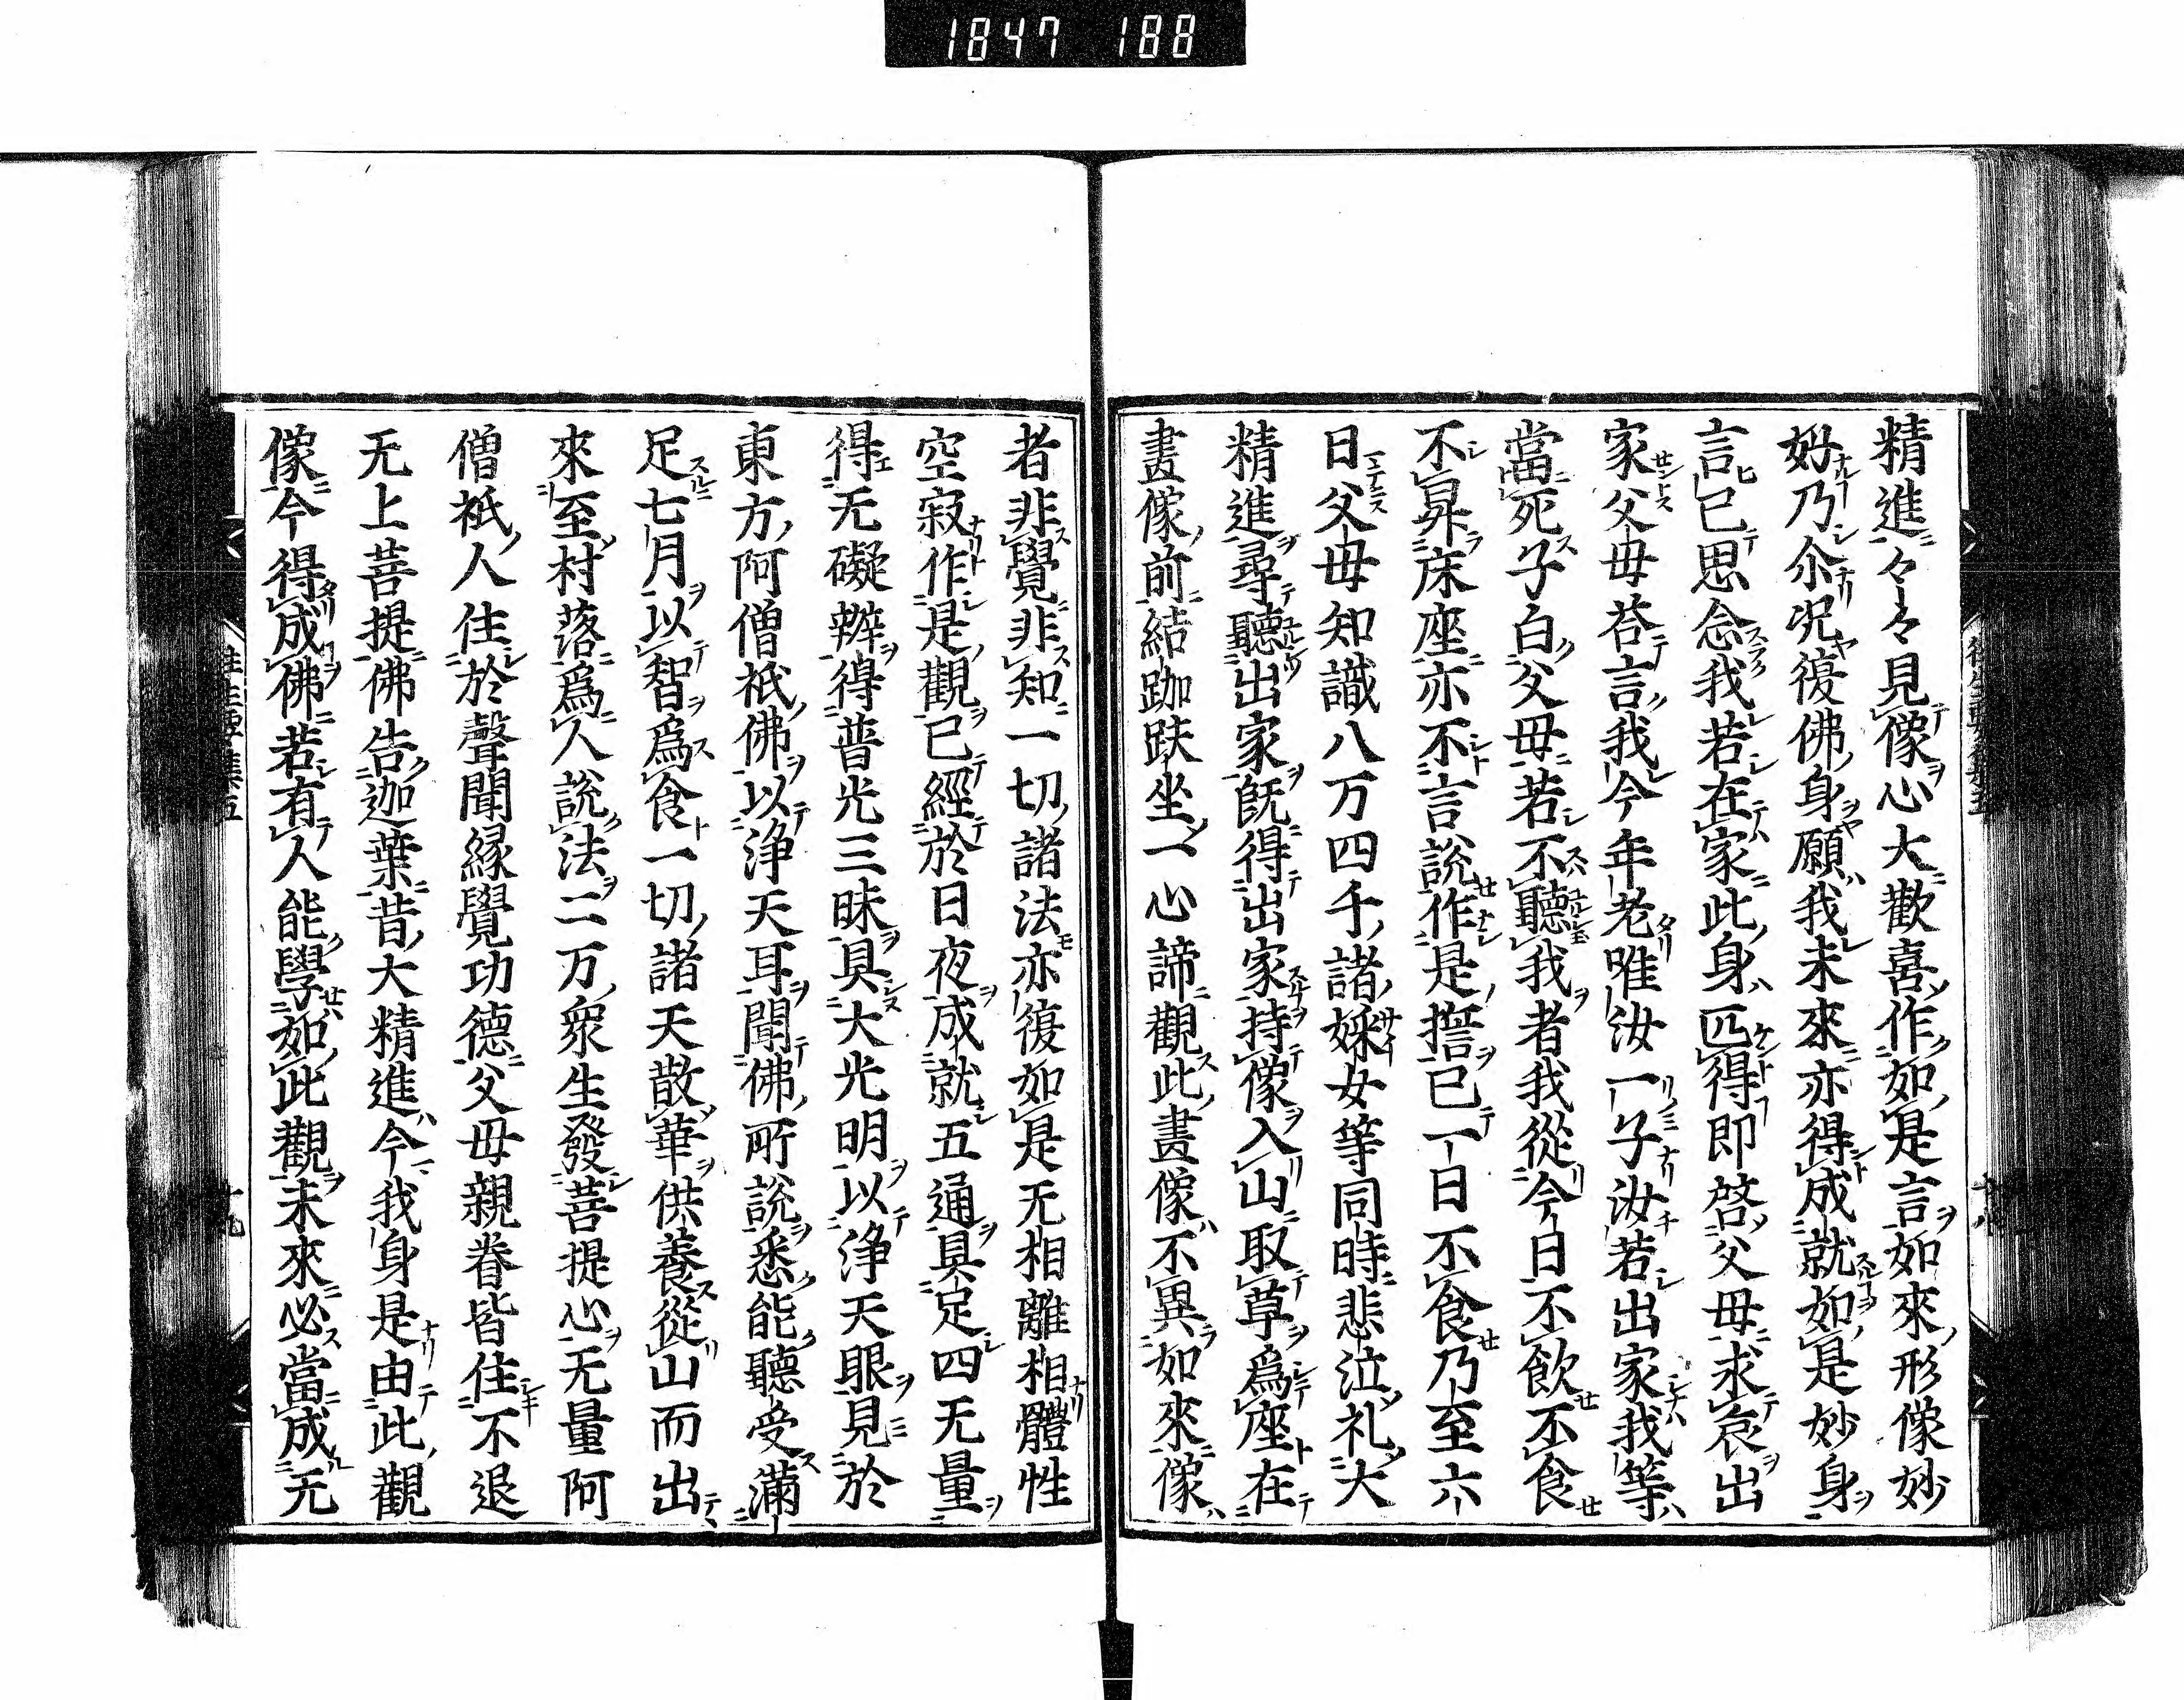 1847 188
精進々々見像心大歡喜作如是言如來形像妙
好乃尒况復佛身願我未來亦得成就如是妙身
言已思念我若在家此身叵得即啓父母求哀出
家父母荅言我今年老唯汝一子汝若出家我等
當死子白父母若不聽我者我從今日不飲不食
不昇床座亦不言說作是擔已一日不食乃至六
日父母知識八万四千諸婇女等同時悲泣礼大
精進尋聽出家既得出家持像入山取草爲座在
畫像前結跏趺坐一心諦觀此畫像不異如來像
者非覺非知一切諸法亦復如是无相離相體性
空寂作是觀已經於日夜成就五通具足四无量
得无礙辯得普光三昧具大光明以淨天眼見於
東方阿僧祇佛以淨天耳聞佛所說悉能聽受滿
足七月以智爲食一切諸天散華供養從山而出
來至村落爲人說法二万衆生發菩提心无量阿
僧祇人住於聲聞緣覺功德父母親眷皆住不退
无上菩提佛告迦葉昔大精進今我身是由此觀
像今得成佛若有人能學如此觀未來必當成无